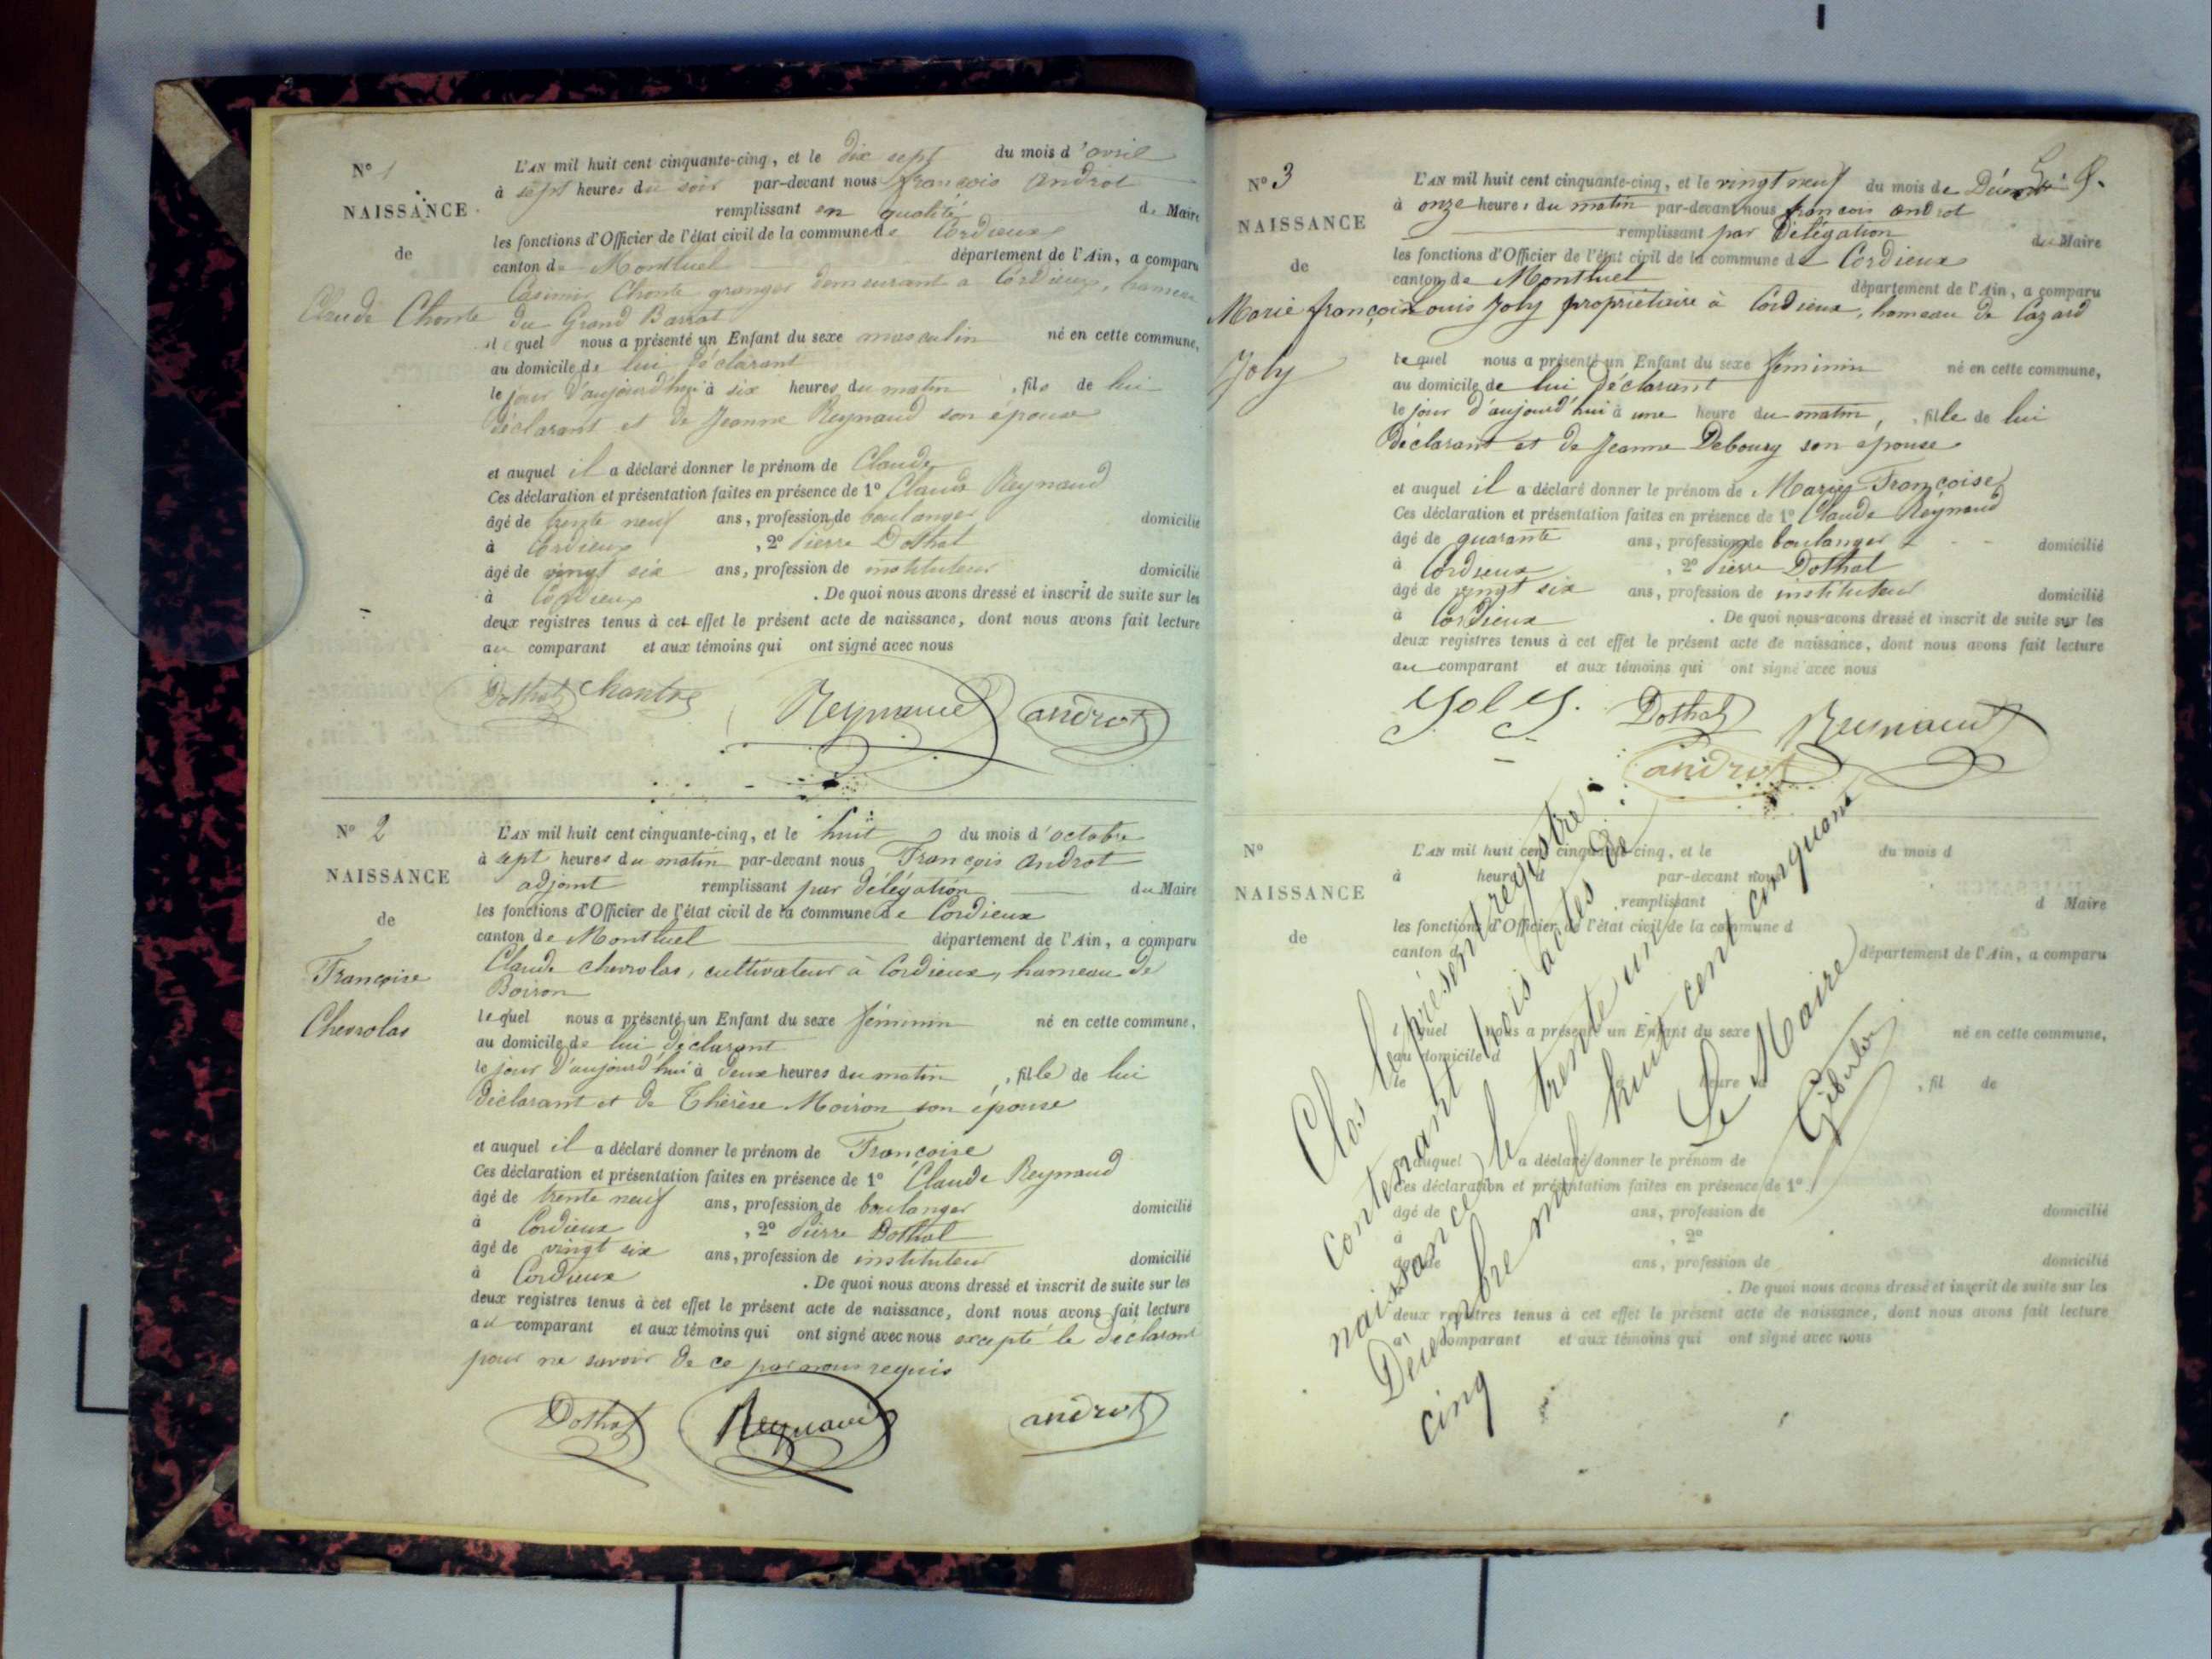 N° 1
NAISSANCE
de
Claude Chonte
L'AN mil huit cent cinquante-cinq, et le dix sept du mois d'avril
à sept heures du soir par-devant nous françois Androt
remplissant en qualité de Maire
les fonctions d'Officier de l'état civil de la commune de Cordieux
canton de Montluel département de l'Ain, a comparu
Casimir Chonte granger demeurant a Cordieux, hameau
du Grand Barrat
lequel nous a présenté un Enfant du sexe masculin né en cette commune,
au domicile de lui déclarant
le jour d'aujourd'hui à six heures du matin, fils de lui
déclarant et de Jeanne Reynaud son épouse
et auquel il a déclaré donner le prénom de Claude
Ces déclaration et présentation faites en présence de 1° Claude Reynaud
âgé de trente neuf ans, profession de boulanger domicilié
à Cordieux, 2° Pierre Dothal
âgé de vingt six ans, profession de instituteur domicilié
à Cordieux. De quoi nous avons dressé et inscrit de suite sur les
deux registres tenus à cet effet le présent acte de naissance, dont nous avons fait lecture
au comparant et aux témoins qui ont signé avec nous
Dothal Chantre Reynaud androt
N° 2
NAISSANCE
de
Françoise
Chevrolas
L'AN mil huit cent cinquante-cinq, et le huit du mois d'octobre
à sept heures du matin par-devant nous François Androt
adjoint remplissant par délégation du Maire
les fonctions d'Officier de l'état civil de la commune de Cordieux
canton de Montluel département de l'Ain, a comparu
Claude Chevrolas, cultivateur à Cordieux, hameau de
Boiron
lequel nous a présenté un Enfant du sexe féminin né en cette commune,
au domicile de lui déclarant
le jour d'aujourd'hui à deux heures du matin, fille de lui
déclarant et de Thérèse Moiron son épouse
et auquel il a déclaré donner le prénom de Françoise
Ces déclaration et présentation faites en présence de 1° Claude Reynaud
âgé de trente neuf ans, profession de boulanger domicilié
à Cordieux, 2° Pierre Dothal
âgé de vingt six ans, profession de instituteur domicilié
à Cordieux. De quoi nous avons dressé et inscrit de suite sur les
deux registres tenus à cet effet le présent acte de naissance, dont nous avons fait lecture
au comparant et aux témoins qui ont signé avec nous excepté le déclarant
pour ne savoir de ce par nous requis
Dothal Reynaud androt
N° 3
NAISSANCE
de
Marie françoise
Joly
L'AN mil huit cent cinquante-cinq, et le vingt neuf du mois de Décembre
à onze heures du matin par-devant nous françois Androt
remplissant par délégation du Maire
les fonctions d'Officier de l'état civil de la commune de Cordieux
canton de Montluel département de l'Ain, a comparu
Louis Joly propriétaire à Cordieux, hameau de Cazard
lequel nous a présenté un Enfant du sexe féminin né en cette commune,
au domicile de lui déclarant
le jour d'aujourd'hui à une heure du matin, fille de lui
déclarant et de Jeanne Debourg son épouse
et auquel il a déclaré donner le prénom de Marie Françoise
Ces déclaration et présentation faites en présence de 1° Claude Reynaud
âgé de quarante ans, profession de boulanger domicilié
à Cordieux, 2° Pierre Dothal
âgé de vingt six ans, profession de instituteur domicilié
à Cordieux. De quoi nous avons dressé et inscrit de suite sur les
deux registres tenus à cet effet le présent acte de naissance, dont nous avons fait lecture
au comparant et aux témoins qui ont signé avec nous
Joly. Dothal Reynaud
androt
N°
NAISSANCE
de
L'AN mil huit cent cinquante-cinq, et le du mois d
à heure d par-devant nous
remplissant d Maire
les fonctions d'Officier de l'état civil de la commune d
canton d département de l'Ain, a comparu
l quel nous a présenté un Enfant du sexe né en cette commune,
au domicile d
le heure d, fil de
et auquel a déclaré donner le prénom de
Ces déclaration et présentation faites en présence de 1°
âgé de ans, profession de domicilié
à, 2°
âgé de ans, profession de domicilié
à. De quoi nous avons dressé et inscrit de suite sur les
deux registres tenus à cet effet le présent acte de naissance, dont nous avons fait lecture
a comparant et aux témoins qui ont signé avec nous
Clos le présent registre
contenant trois actes de
naissance le trente un
Décembre mil huit cent cinquante
cinq
Le Maire